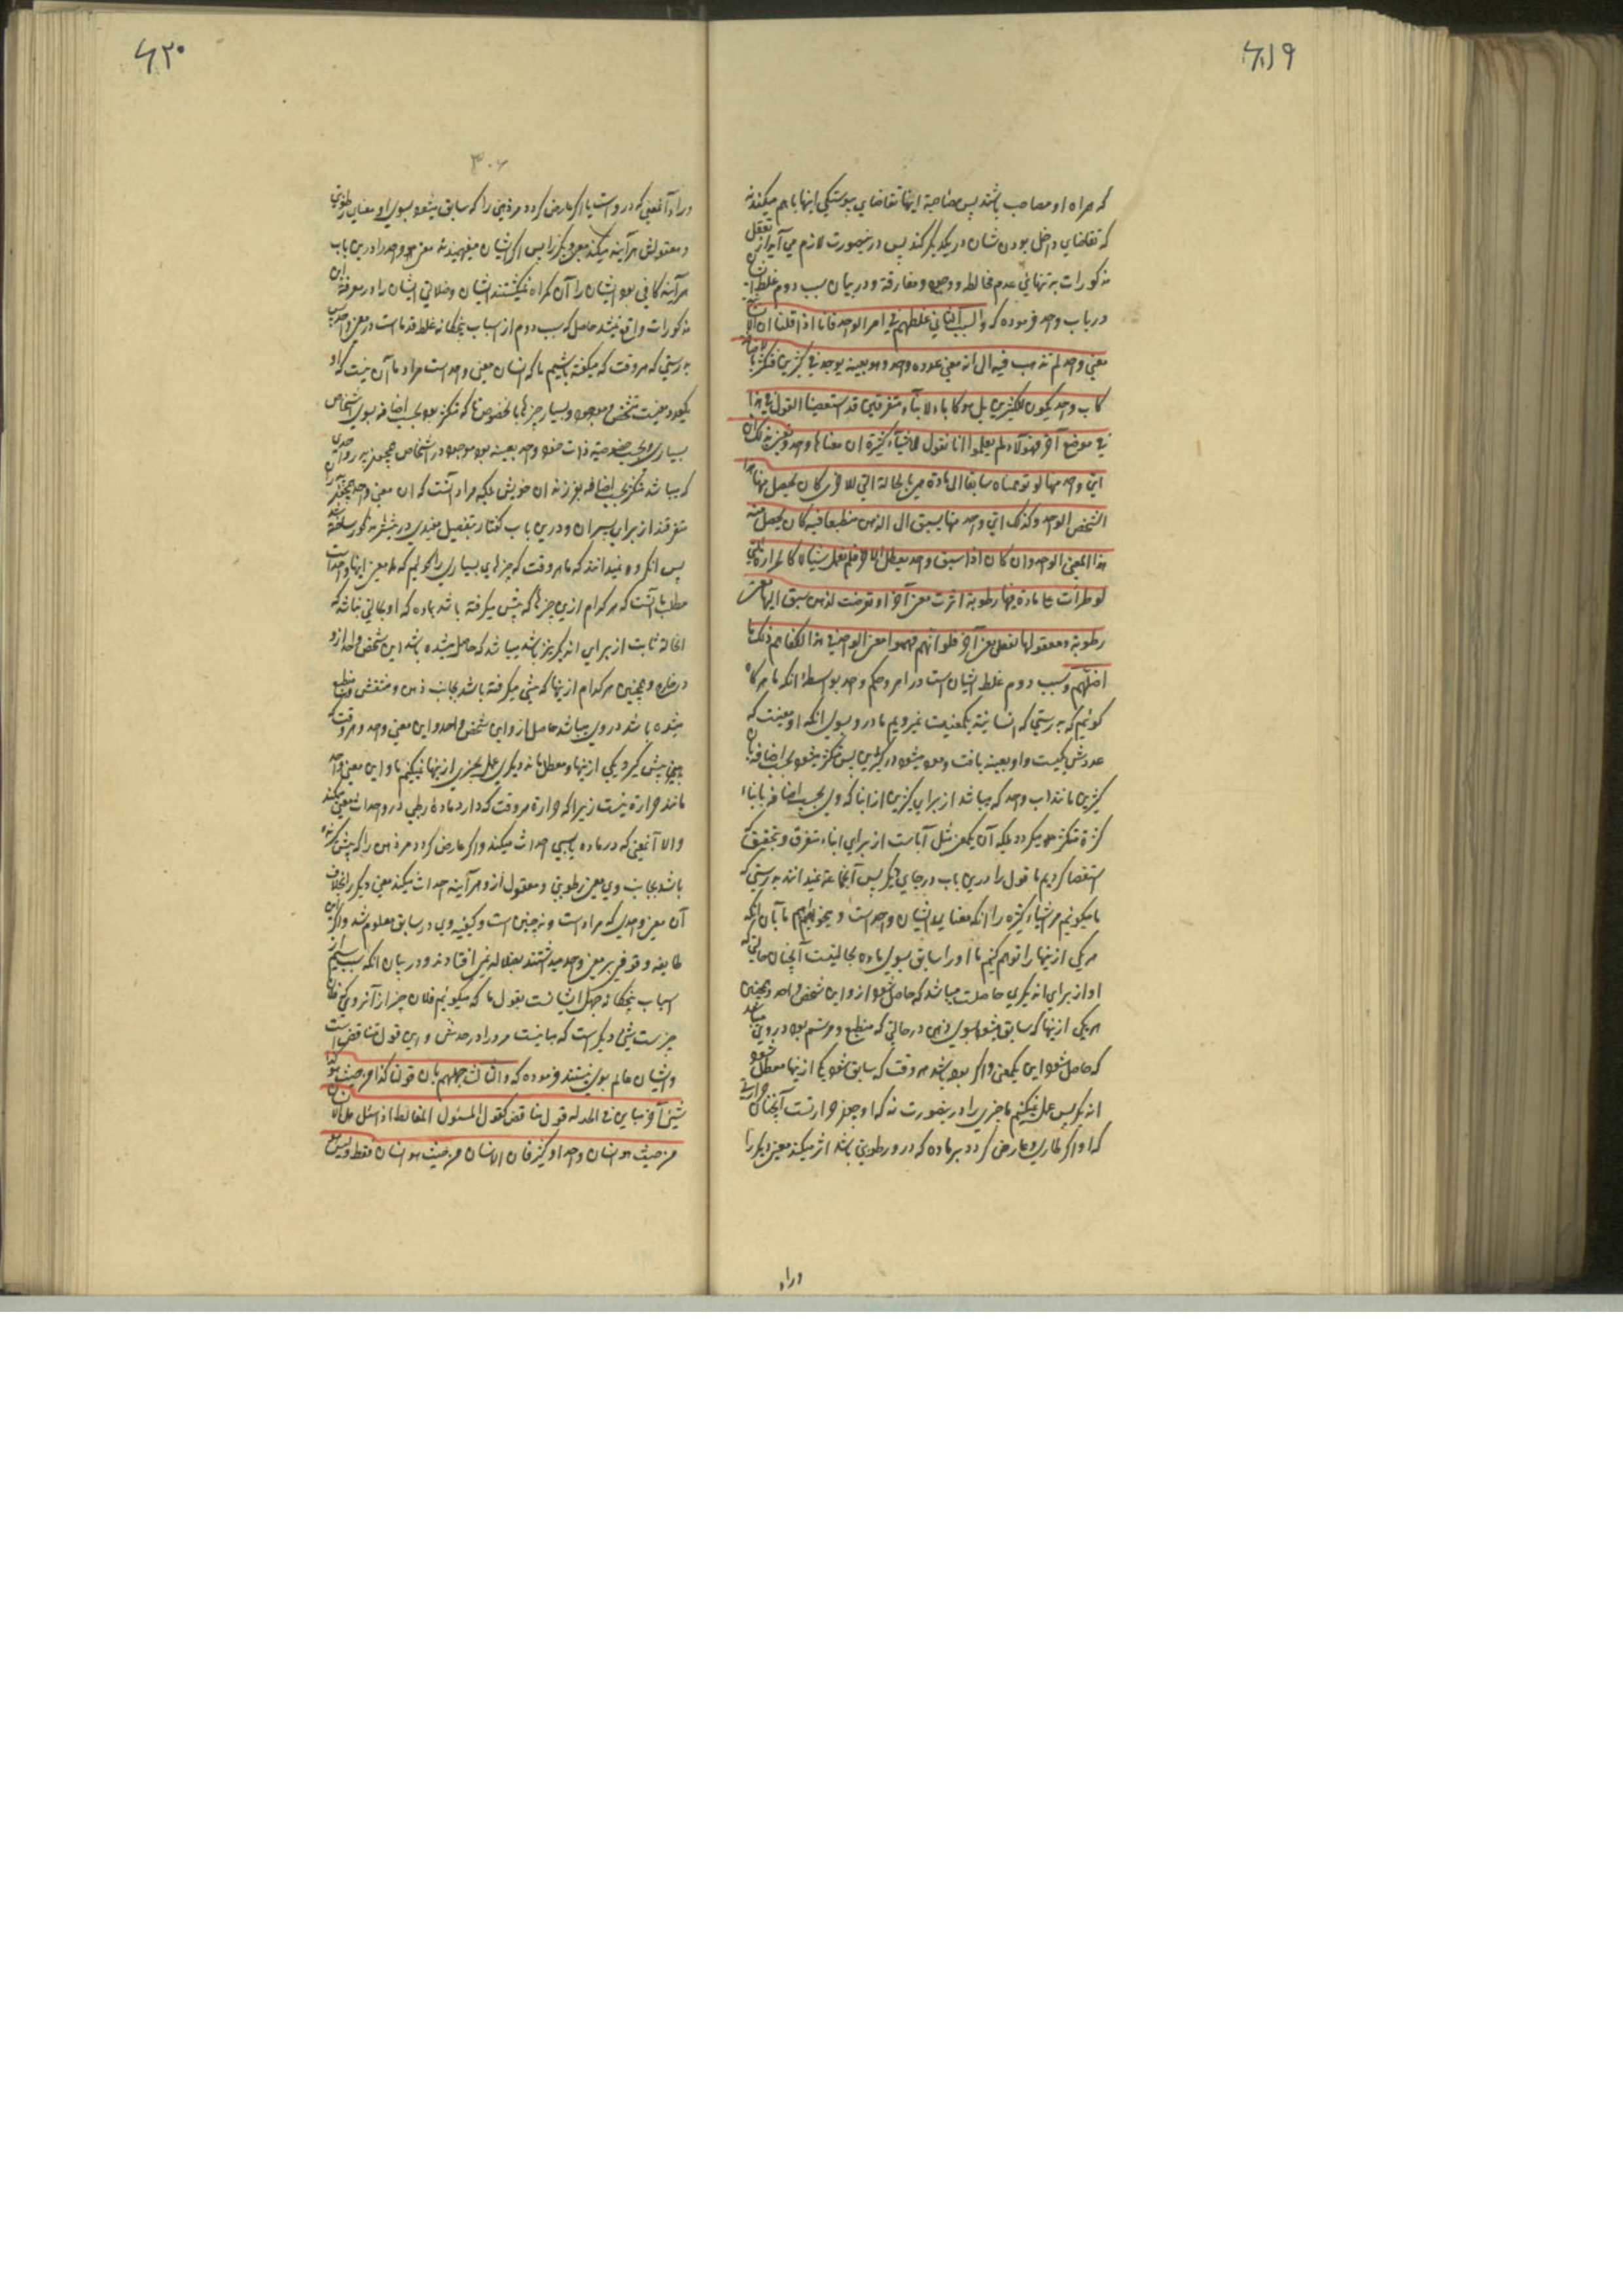 ۶۱۹
که همراه او مصاحب باشند پس مصاحبة اینها تقاضای پیوستگی اینها باهم میکند نه
که تقاضای داخل بودن شان در یکدیگر کند پس درینصورت لازم می آید از تعقل
مذکورات به تنهائی عدم مخالطه و مفارقة و در بیان سبب دوم غلط
در باب واحد فرموده که والسبب الثانی غلطهم فی امر الواحد فانا اذا قلنا ان الانسانیة
معنی واحد لم نذهب فیه الی انه معنی عدده واحد وهو بعینه یوجد فی کثیرین فتکثر بالاضافة
کاب واحد یکون لکثیرین بل هو کالآباء لابناء متفرقین قد استقصینا القول فی هذا
فی موضع آخر فهؤلاء لم یعلموا انا نقول لاشیاء کثیرة ان معناها واحد ونعنی بذلک ان
ای واحد منها لو توهمناه سابقا الی مادة هی بالحالة التی للاخری کان یحصل منها هذا
الشخص الواحد وکذلک ای واحد منها یسبق الی الذهن منطبعا فیه کان یحصل منه
هذا المعنی الواحد وان کان اذا سبق واحد تعطل الاخر فلم یعمل شیئا کالحرارة التی
لو طرأت علی مادة فیها رطوبة اثرت معنی آخر او تعرضت لذهن سبق الیها معنی
رطوبة ومعقولها لفعلت معنی آخر فلو انهم فهموا معنی الواحد فی هذا لکفاهم ذلک ما
اضلهم وسبب دوم غلط ایشان است در امر و حکم واحد بواسطۀ انکه ما هرگاه
گوئیم که بدرستی که انسانیة یکمعنیست نمیرویم ما درو بسوی انکه او معنیست که
عددش یکیست و او بعینه یافت و موجود میشود در کثیرین پس متکثر میشود بحسب اضافة بان
کثیرین مانند اب واحد که میباشد از برای کثیرین از ابنا که وی بحسب اضافه بابناء
کثرة متکثر میگردد بلکه آن یکمعنی مثل آباست از برای ابناء متفرق و بتحقیق که
استقصا کردیم ما قول را درین باب در جای دیگر پس آنجماعة نمیدانند بدرستی که
ما میگوئیم مر اشیاء کثیره را انکه معنای ایشان واحد است و میخواهیم ما بآن انکه
هر یکی ازینها را توهم کنیم ما او را سابق بسوی ماده بحالتیست آنچنان حالتی که
او از برای ان دیگری حاصلست میباشد که حاصل شود ازو این شخص واحد و همچنین
هر یکی ازینها که سابق میشود بسوی ذهن در حالتی که منطبع و مرتسم بود در وی میباشد
که حاصل شود این یکمعنی و اگر بوده باشد هر وقت که سابق شود یکی ازینها معطل شود
ان دیگر پس عمل نمیکنیم ما چیزی را درینصورت نه که او بمعنی حرارتست آنچنان حرارتی
که او اگر طاری و عارض گردد بر ماده که درو رطوبتی باشد اثر میکند معنی دیگر را
وراء
۶۲۰
۳۰۶
وراء آنمعنی که دروست یا اگر عارض گردد مر ذهنی را که سابق میشود بسوی او معنای رطوبتی
و معقولش هر آینه میکند معنی دیگر را پس اگر ایشان میفهمیدند معنی واحد را درین باب
هر آینه کافی بود ایشان را آن گمراه نمیگشتند ایشان و ضلالتی ایشان را در معرفة این
مذکورات واقع نمیشد حاصل که سبب دوم از اسباب پنجگانه غلط قدماست در معنی واحد
بدرستی که هر وقت که میگفته باشیم ما که انسان معنی واحد است مراد ما آن نیست که او
یکعدد معنیست شخص موجود و بسیار چیزها بالخصوصها که متکثر بود بحسب اضافه بسوی اشخاص
بسیاری و بحسب خصوصیة ذات خود واحد بعینه بود موجود در اشخاص همچو پدر واحدی
که میباشد متکثر بحسب اضافه بفرزندان خویش بلکه مراد آنست که ان معنی واحد همچو پدران
متفرقند از برای پسران و درین باب گفتار بتفصیل مفیدی در پیشتر مذکور ساخته شد
پس انگروه نمیدانند که ما هر وقت که چیزهای بسیاری را گوئیم که معنی اینها واحد است
مطلب ما آنست که هر کدام ازین چیزها که پیش میگرفته باشد بماده که او بحالتی باشد که
انحالة ثابت از برای ان دیگر نیز باشد میباشد که حاصل میشده باشد این شخص واحد ازو
در خارج و همچنین هر کدام ازینها که پیشی میگرفته باشد بجانب ذهن و منتقش و منطبع
میشده باشد در وی میباشد حاصل ازو این شخص واحد و این معنی واحد و هر وقت که
پیش گیرد یکی ازینها و معطل ماند دیگری عمل بچیزی ازینها نمیکنیم ما و این معنی واحد
مانند حرارة نیست زیرا که حرارة هر وقت که دارد مادۀ رطبی در و احداث معنی میکند
والا آنمعنی که در ماده یابسی احداث میکند و اگر عارض گردد مر ذهن را که پیش گرفته
باشد بجانب وی معنی رطوبتی و معقول ازو هر آینه احداث میکند معنی دیگر را بخلاف
آن معنی واحدی که مراد است و نه چنین است و کیفیه وی در سابق معلوم شد و اگر این
طایفه وقوفی بر معنی واحد میداشتند بضلاله نمی افتادند و در بیان انکه سبب سیم از
اسباب پنجگانه جهل ایشانست بقول ما که میگوئیم فلان چیز از آنروی که فلان
چیزست شیئی دیگر است که مباینست مر او را در حدش و این قول متناقض است
و ایشان عالم بوی نیستند فرموده که والثالث جهلهم بان قولنا کذا من حیث هو کذا
شیئ آخر مباین فی الحد له قول متناقض کقول المسئول المغالط اذا سئل هل الانسان
من حیث هو انسان واحد او کثیر فان الانسان من حیث هو انسان انسان فقط ولیس هو